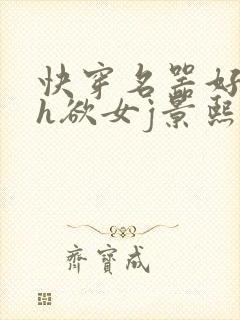 快穿名器好
h欲女j景熙
齐宝成